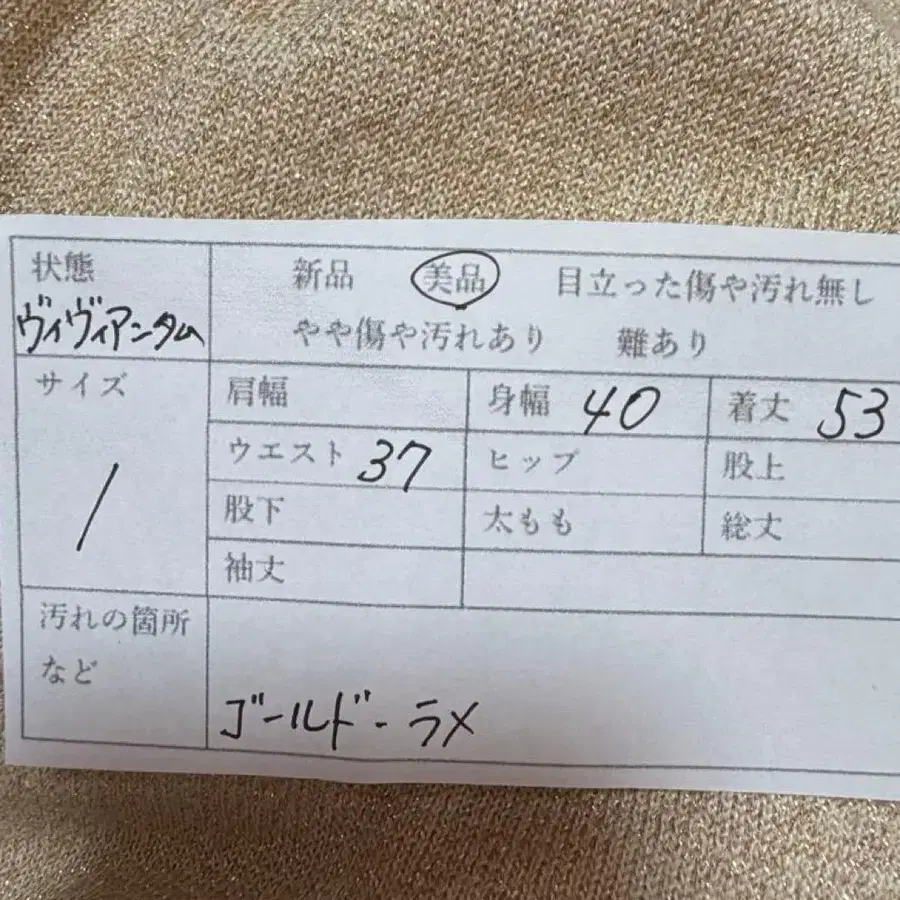 状態 新品 美品 目立った傷や汚れ無し
ヴィヴィアンタム やや傷や汚れあり 難あり
サイズ 肩幅 身幅 40 着丈 53
ウエスト 37 ヒップ 股上
/ 股下 太もも 総丈
袖丈
汚れの箇所
など
ゴールド-ラメ